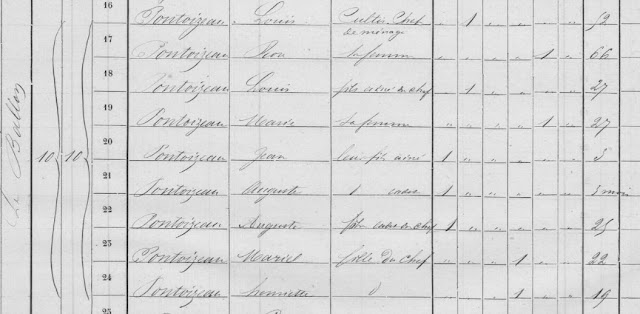 16 Pontoizeau Louis Cultr. Chef de ménage " 1 " " " " 52
17 Pontoizeau sa femme " " " " 1 " 66
18 Pontoizeau Louis fils ainé du chef " 1 " " " " 27
19 Pontoizeau Marie sa femme " " " " 1 " 27
20 Pontoizeau Jean leur fils ainé 1 " " " " " 3
Le 10 10
21 Pontoizeau Auguste d cadet 1 " " " " " 3 mois
22 Pontoizeau Auguste fils cadet du chef 1 " " " " " 25
23 Pontoizeau fille du chef " " " 1 " " 22
24 Pontoizeau d " " " 1 " " 19
25